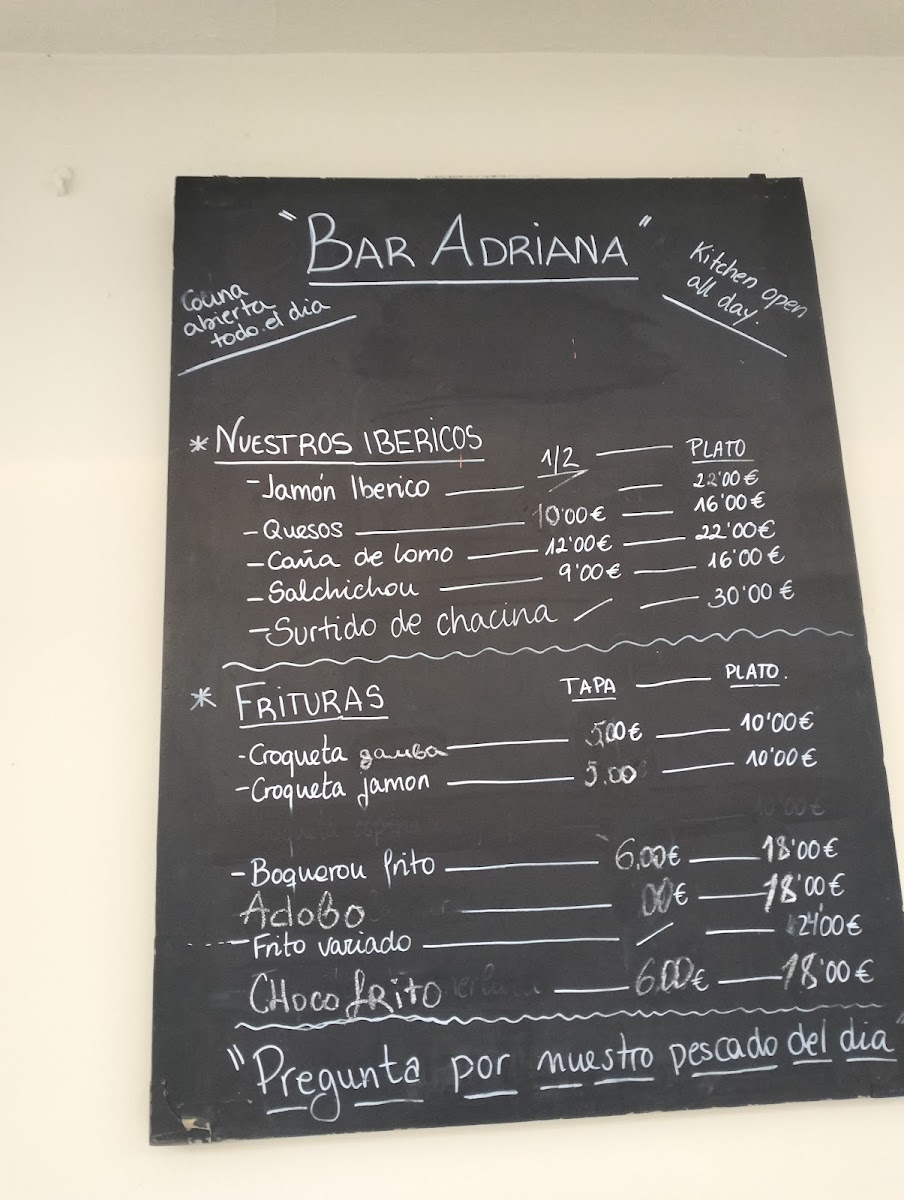 "BAR ADRIANA"
Cocina
abierta
todo el dia
Kitchen open
all day.
* NUESTROS IBERICOS 1/2 — PLATO
- Jamón Iberico — / — 22'00€
- Quesos — 10'00€ — 16'00€
- Caña de lomo — 12'00€ — 22'00€
- Salchichou — 9'00€ — 16'00€
- Surtido de chacina / — 30'00€
* FRITURAS TAPA — PLATO.
- Croqueta gamba — 5,00€ — 10'00€
- Croqueta jamon — 5,00 — 10'00€
10'00€
- Boquerou frito — 6,00€ — 18'00€
Adobo — 00€ — 18'00€
- Frito variado — / — 24'00€
CHOCO fRITO — 6,00€ — 18'00€
"Pregunta por nuestro pescado del dia"